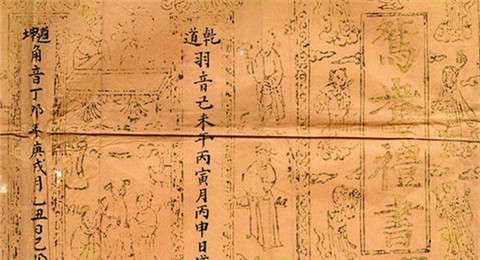 禮書
乾道
羽音己未年丙寅月丙申日
坤道
角音丁卯年庚戌月乙丑日己